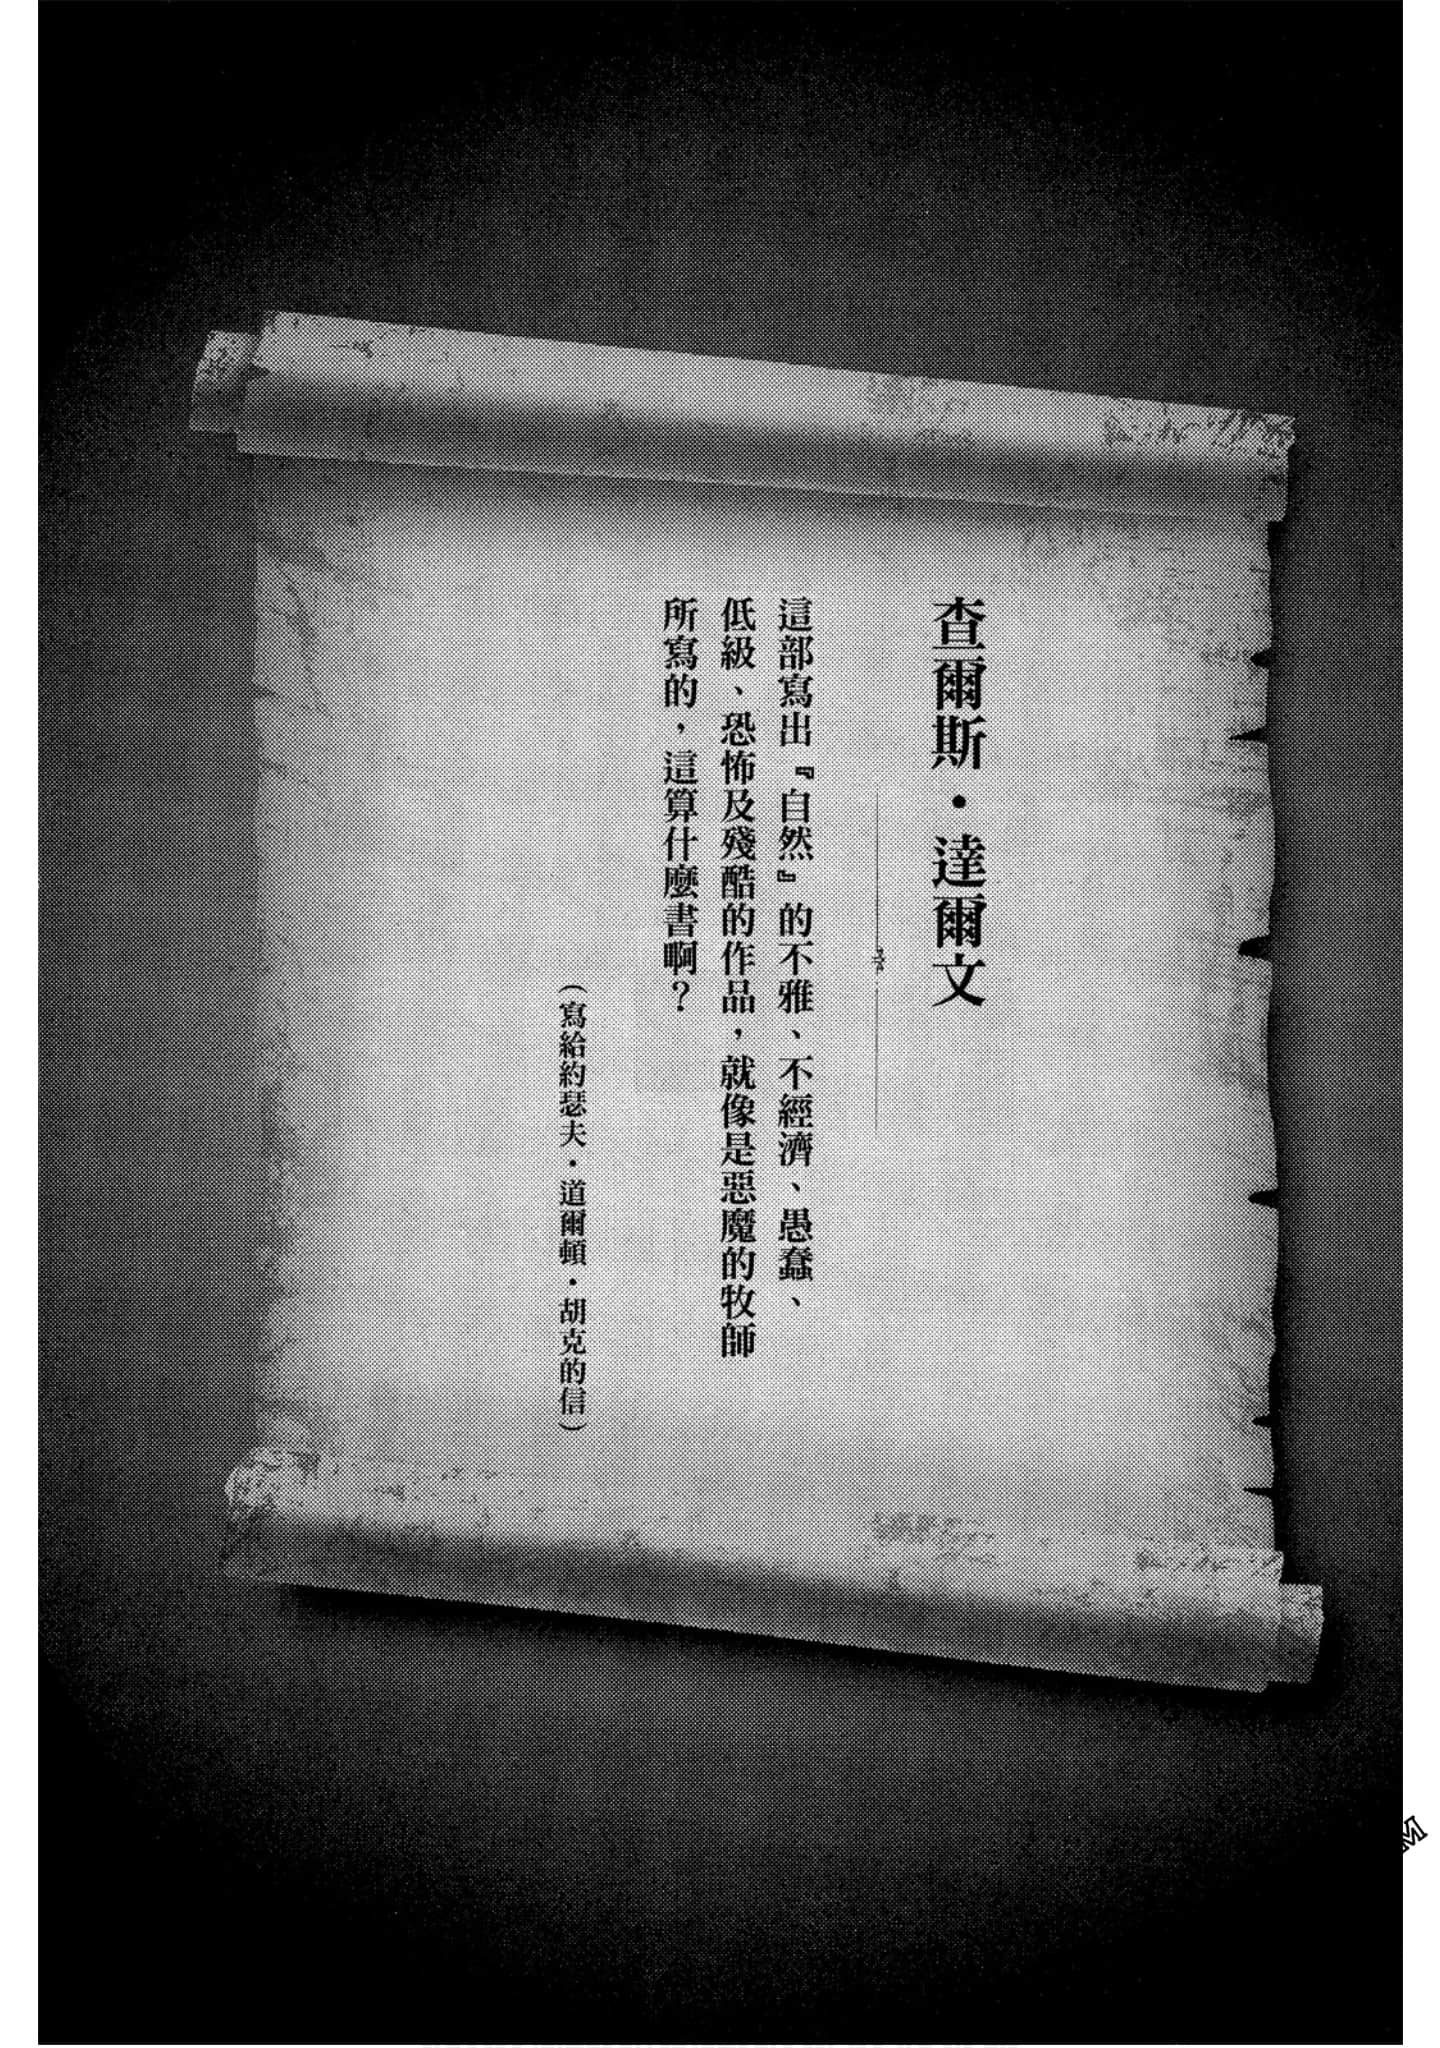 查爾斯・達爾文
這部寫出『自然』的不雅、不經濟、愚蠢、
低級、恐怖及殘酷的作品，就像是惡魔的牧師
所寫的，這算什麼書啊？
（寫給約瑟夫・道爾頓・胡克的信）
M